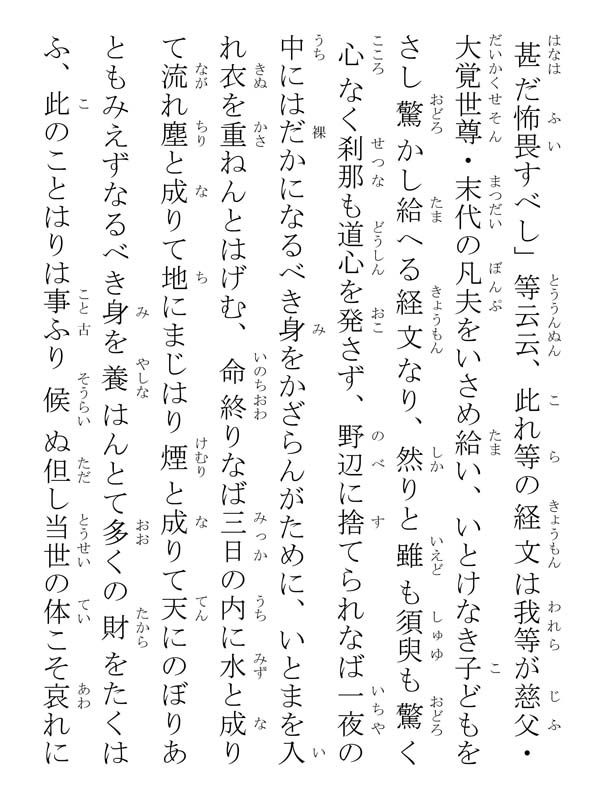 甚だ怖畏すべし」等云云、此れ等の経文は我等が慈父・
大覚世尊・末代の凡夫をいさめ給い、いとけなき子どもを
さし驚かし給へる経文なり、然りと雖も須臾も驚く
心なく刹那も道心を発さず、野辺に捨てられなば一夜の
中にはだかになるべき身をかざらんがために、いとまを入
れ衣を重ねんとはげむ、命終りなば三日の内に水と成り
て流れ塵と成りて地にまじはり煙と成りて天にのぼりあ
ともみえずなるべき身を養はんとて多くの財をたくは
ふ、此のことはりは事ふり候ぬ但し当世の体こそ哀れに